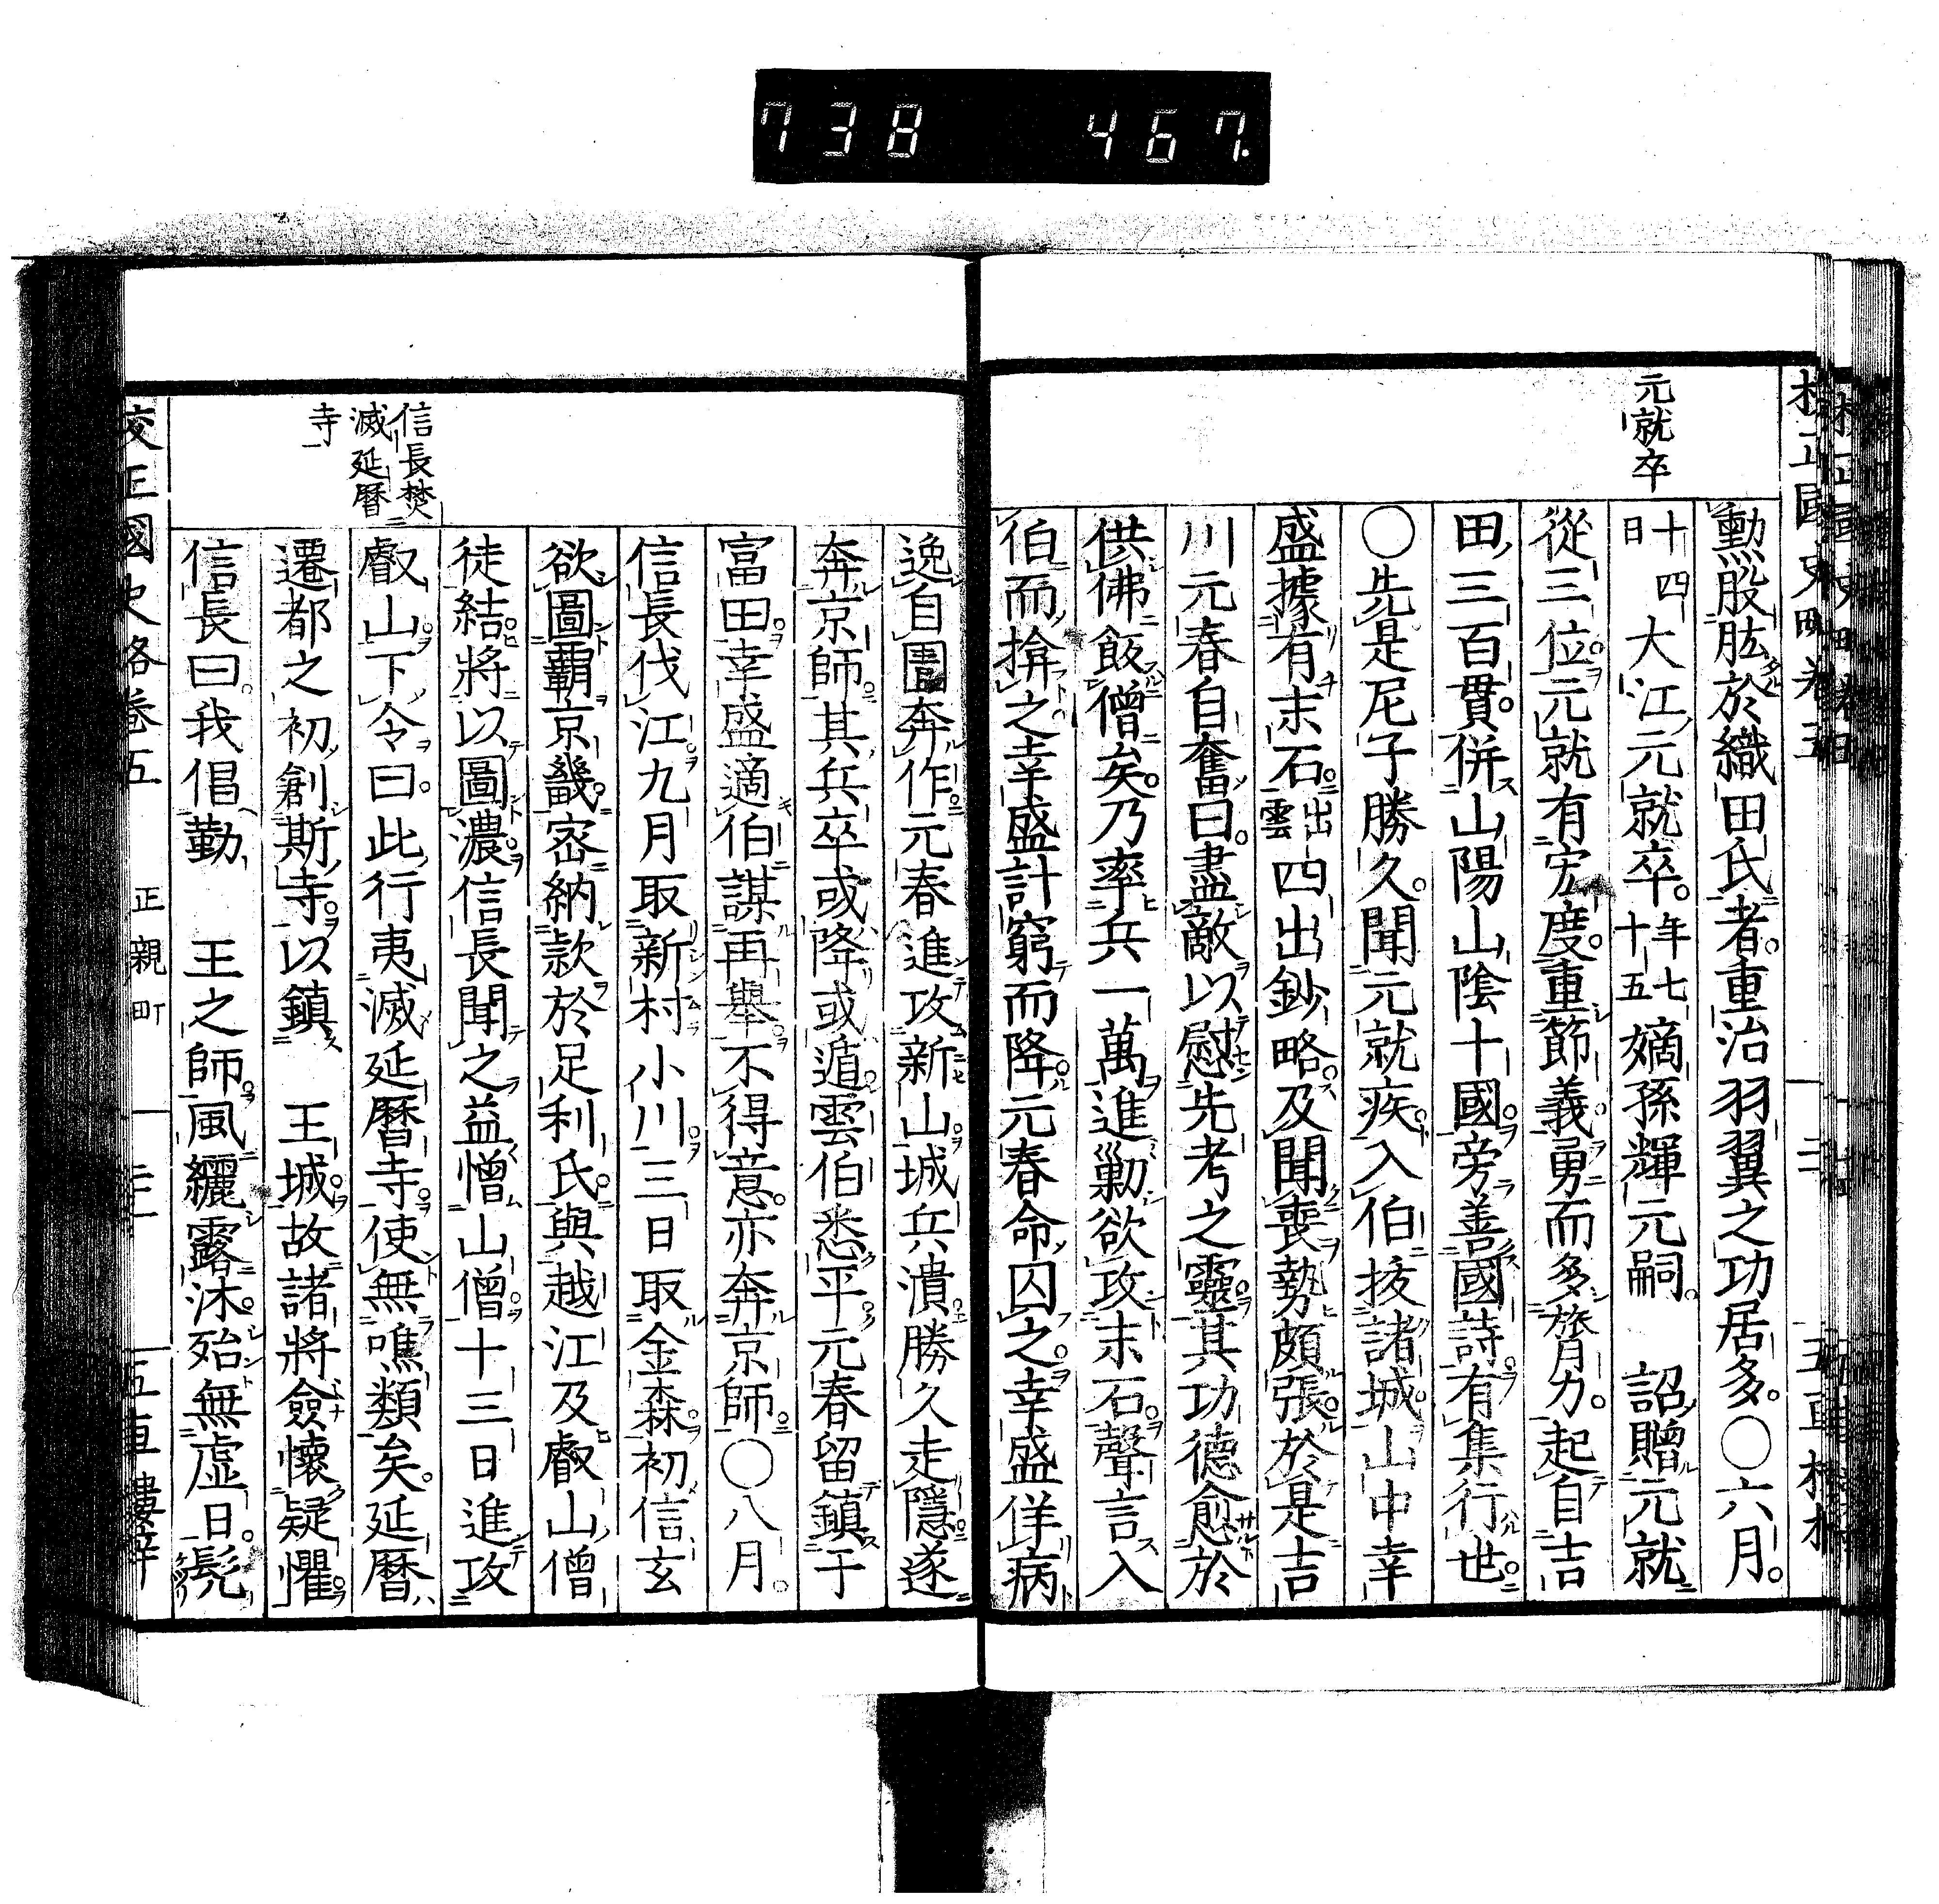 738 467
元就卒
勳股肱於織田氏者重治羽翼之功居多〇六月
十四日大江元就卒年七十五嫡孫輝元嗣 詔贈元就
從三位元就有宏度重節義勇而多膂力起自吉
田三百貫併山陽山陰十國旁善國詩有集行世
〇先是尼子勝久聞元就疾入伯拔諸城山中幸
盛據有末石出雲四出鈔略及聞喪勢頗張於是吉
川元春自奮曰盡敵以慰先考之靈其功德愈於
供佛飯僧矣乃率兵一萬進勦欲攻末石聲言入
伯而揜之幸盛計窮而降元春命囚之幸盛佯病
逸自圊奔作元春進攻新山城兵潰勝久走隱遂
奔京師其兵卒或降或遁雲伯悉平元春留鎮于
富田幸盛適伯謀再舉不得意亦奔京師〇八月
信長伐江九月取新村小川三日取金森初信玄
欲圖霸京畿密納款於足利氏與越江及叡山僧
徒結將以圖濃信長聞之益憎山僧十三日進攻
叡山下令曰此行夷滅延曆寺使無噍類矣延曆
遷都之初創斯寺以鎮 王城故諸將僉懷疑懼
信長曰我倡勤 王之師風纚露沐殆無虛日髡
信長焚
滅延曆
寺
校正國史略卷五 正親町 五車樓梓